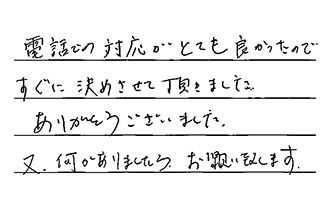 電話での対応がとても良かったので
すぐに決めさせて頂きました。
ありがとうございました。
又、何かありましたら、お願い致します。